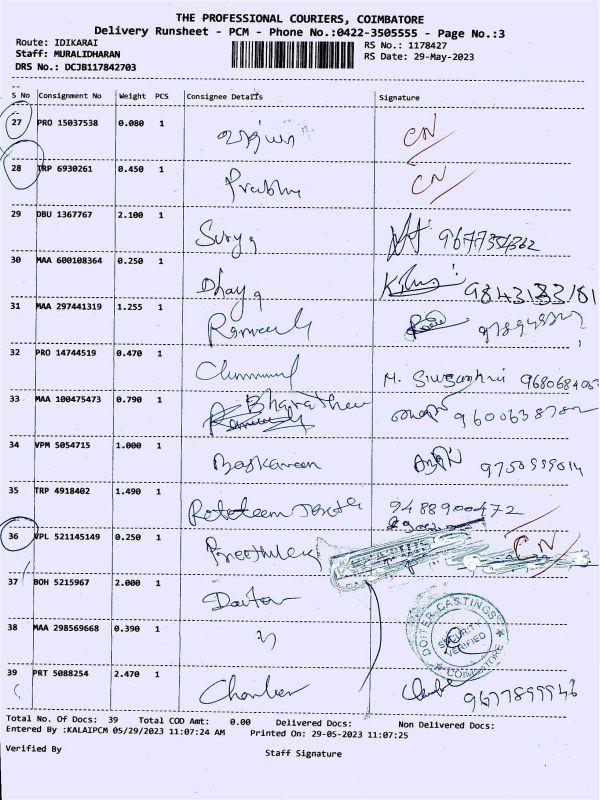 THE PROFESSIONAL COURIERS, COIMBATORE
Delivery Runsheet - PCM - Phone No.:0422-3505555 - Page No.:3
Route: IDIKARAI
RS No.: 1178427
Staff: MURALIDHARAN
RS Date: 29-May-2023
DRS No.: DCJB117842703
S No Consignment No Weight PCS Consignee Details Signature
27 PRO 15037538 0.080 1 CN
28 TRP 6930261 0.450 1 Prabhu CN
29 DBU 1367767 2.100 1 Surya 9677354362
30 MAA 600108364 0.250 1 Dhaya 9843133181
31 MAA 297441319 1.255 1
32 PRO 14744519 0.470 1 M.
33 MAA 100475473 0.790 1 Bharathee
34 VPM 5054715 1.000 1 Baskaran 9750999014
35 TRP 4918402 1.490 1 9488900472
36 VPL 521145149 0.250 1 CN
37 BOH 5215967 2.000 1
38 MAA 298569668 0.390 1 "
DOITER CASTINGS
SECURITY
VERIFIED
COIMBATORE
39 PRT 5088254 2.470 1 9677899946
Total No. Of Docs: 39 Total COD Amt: 0.00 Delivered Docs: Non Delivered Docs:
Entered By :KALAIPCM 05/29/2023 11:07:24 AM Printed On: 29-05-2023 11:07:25
Verified By Staff Signature